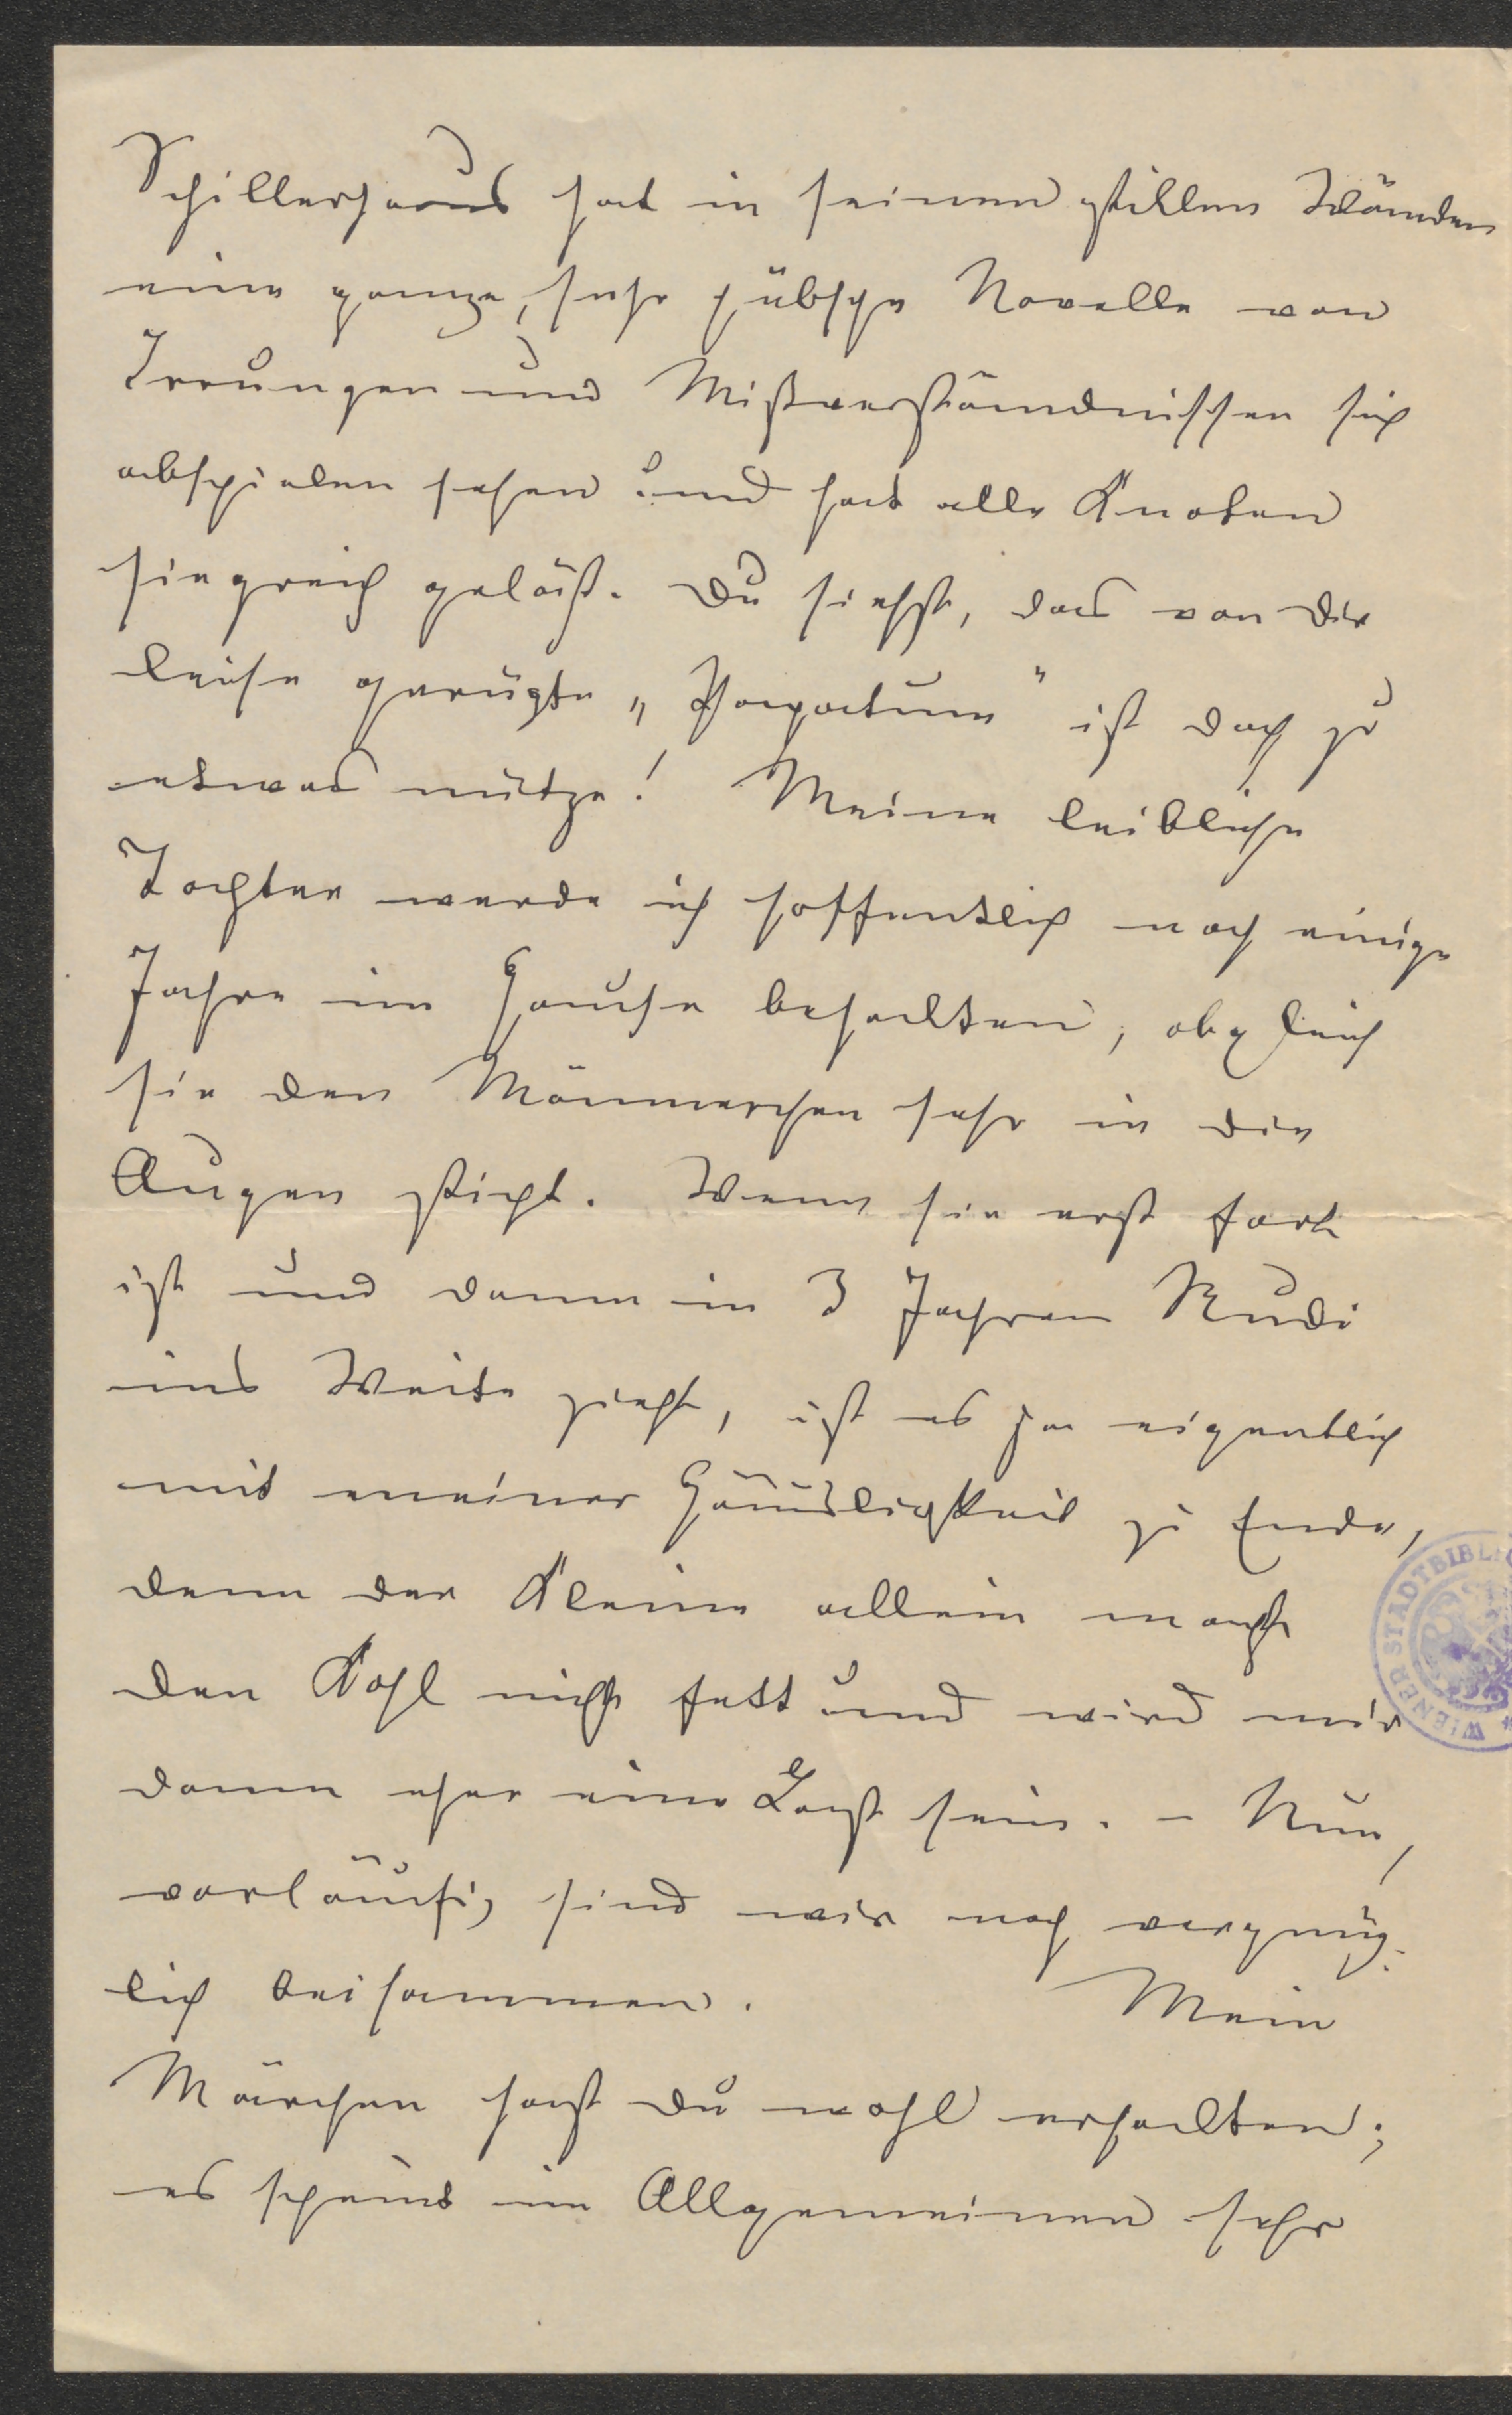 Schillerhaus hat in seinen stillen Wänden
eine ganze, sehr hübsche Novelle von
Irrungen und Mißverständnissen sich
abspielen sehen und hat alle Knoten
siegreich gelöst. Du siehst, das von Dir
leise gerügte „Papatum" ist doch zu
etwas nütze! Meine leibliche
Tochter werde ich hoffentlich noch einige
Jahre im Hause behalten, obgleich
sie den Männerchen sehr in die
Augen sticht. Wenn sie erst fort
ist und dann in 3 Jahren Rudi
ins Weite zieht, ist es ja eigentlich
mit meiner Häusligkeit zu Ende,
denn der Kleine allein macht
den Kohl nicht fett und wird mir
dann eher eine Last sein. – Nun,
vorläufig sind wir noch vergnüg-
lich beisammen. Mein
Märchen hast du wohl erhalten;
es scheint im Allgemeinen sehr
WIENER STADTBIBL